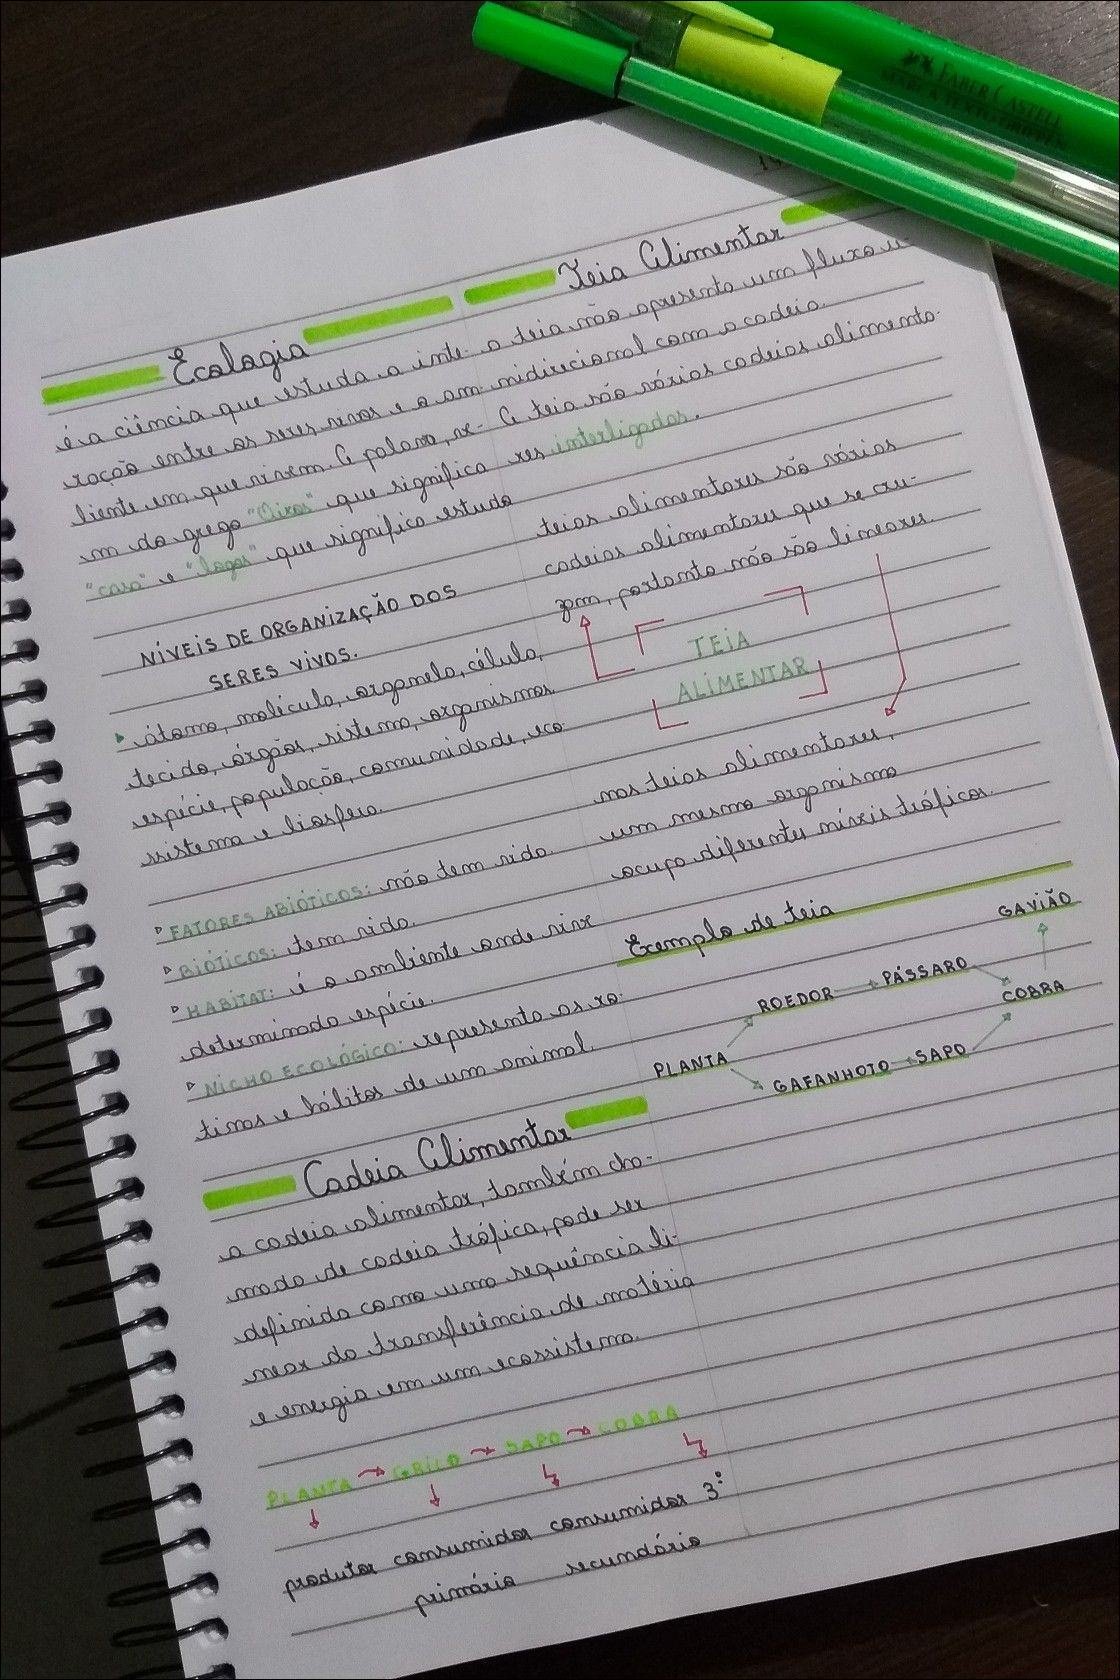 FABER CASTELL
Ecologia
é a ciência que estuda a inte-
ração entre os seres vivos e o am-
biente em que vivem. A palavra, ve-
m do grego "Oikos" que significa
"casa" e "logos" que significa estudo
NÍVEIS DE ORGANIZAÇÃO DOS
SERES VIVOS.
átomo, molécula, organela, célula,
tecido, órgãos, sistema, organismos
espécie, população, comunidade, eco-
ssistema e biosfera.
FATORES ABIÓTICOS: não tem vida.
BIÓTICOS: tem vida.
HABITAT: é o ambiente onde vive
determinada espécie.
NICHO ECOLÓGICO: representa as ro-
tinas e hábitos de um animal.
Cadeia Alimentar
a cadeia alimentar, também cha-
mada de cadeia trófica, pode ser
definida como uma sequência li-
near da transferência de matéria
e energia em um ecossistema.
PLANTA → GRILO → SAPO → COBRA
produtor consumidor consumidor 3º
primário secundário
Teia Alimentar
a teia não apresenta um fluxo u-
nidirecional com a cadeia.
A teia são várias cadeias alimenta-
res interligadas.
teias alimentares são várias
cadeias alimentares que se cru-
zam, portanto não são lineares.
TEIA
ALIMENTAR
nas teias alimentares,
um mesmo organismo
ocupa diferentes níveis tróficos.
Exemplo de teia
GAVIÃO
ROEDOR → PÁSSARO
COBRA
PLANTA
GAFANHOTO → SAPO